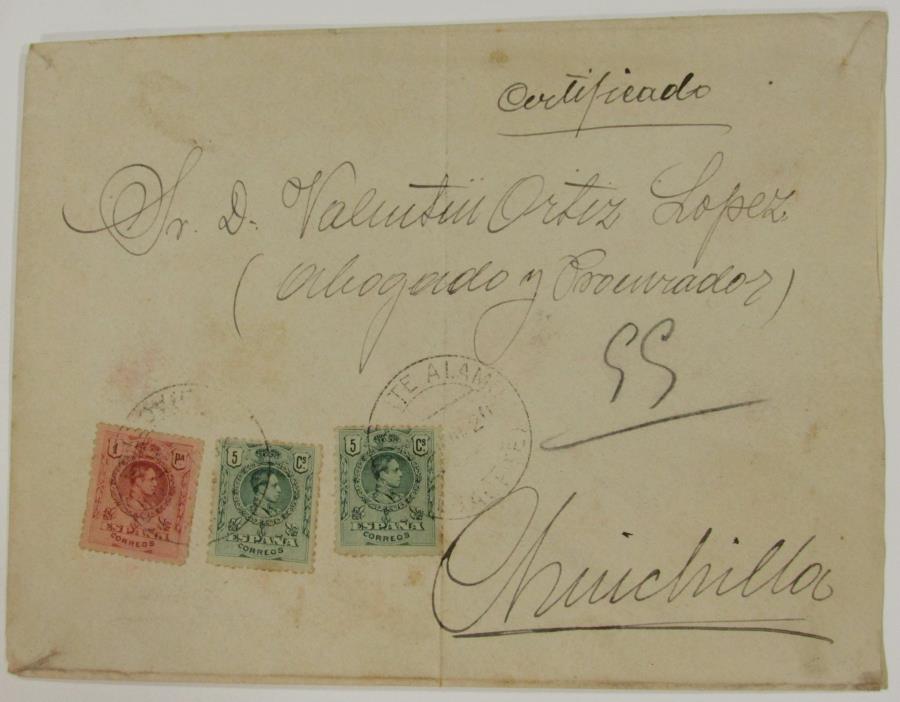 Certificado
Sr. D. Valentin Ortiz Lopez
(Abogado y Procurador)
99
TE ALAM
1 PA
ESPAÑA
CORREOS
5 Cs
ESPAÑA
CORREOS
5 Cs
ESPAÑA
CORREOS
Chinchilla